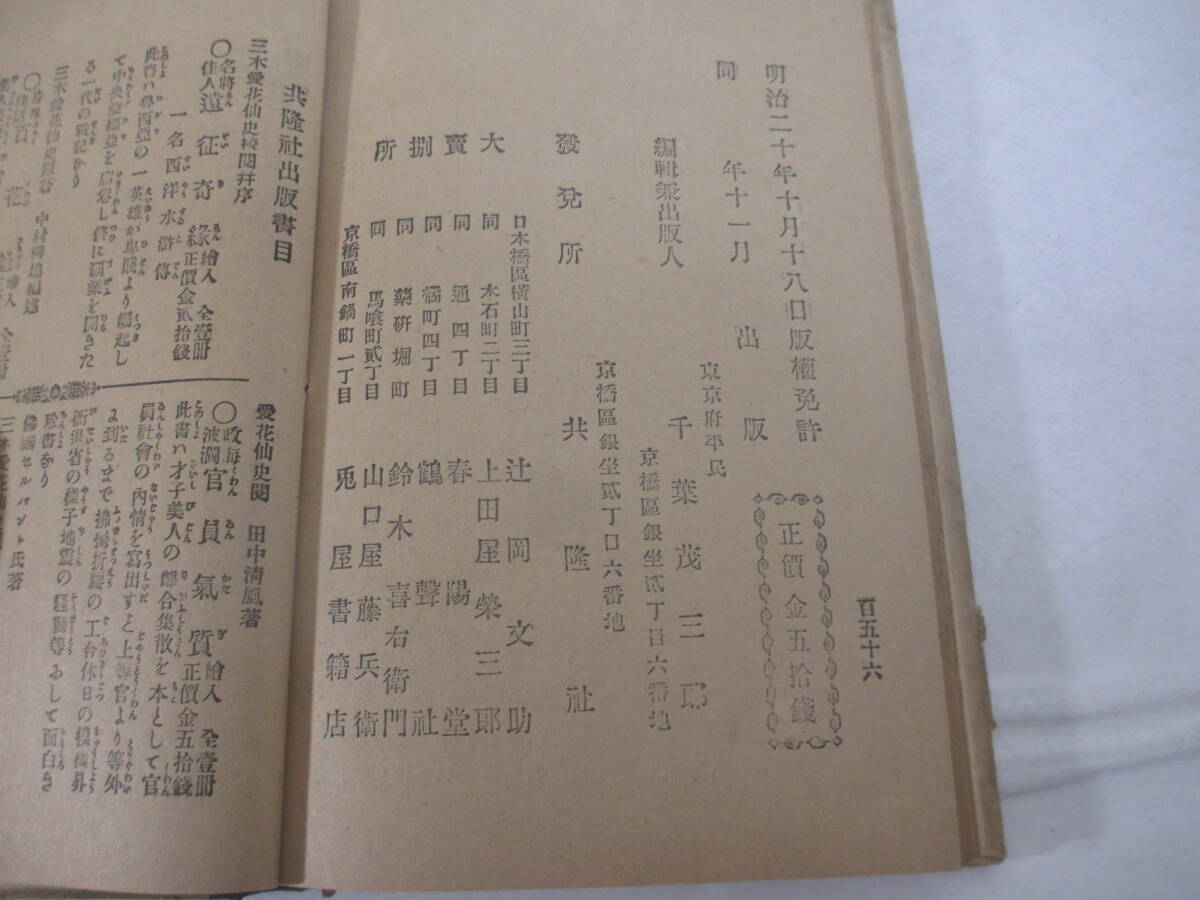 百五十六
正價金五拾錢
明治二十年十月十八日版權免許
同年十一月出版
東京府平民
編輯兼出版人 千葉茂三郎
京橋區銀坐貳丁目六番地
發兌所 共隆社
京橋區銀坐貳丁目六番地
大賣捌所
日本橋區橫山町三丁目 辻岡文助
同 本石町二丁目 上田屋榮三郎
同 通四丁目 春陽堂
同 橘町四丁目 鶴聲社
同 藥硏堀町 鈴木喜右衛門
同 馬喰町貳丁目 山口屋藤兵衛
京橋區南鍋町一丁目 兎屋書籍店
共隆社出版書目
三木愛花仙史校閱幷序
○名將佳人遠征奇緣 繪入 全壹冊 正價金貳拾錢
一名西洋水滸傳
此書ハ魯西亞の一英雄が卑賤より崛起し
て中央亞細亞を
る一代の戰記なり
三木愛花仙史
愛花仙史閱 田中淸風著
○政海波瀾官員氣質 繪入 全壹冊 正價金五拾錢
此書ハ才子美人の離合集散を本として官
員社會の內情を寫出すと上等官より等外
よ到るまで拂鬚折腰の工合休日の模樣昇
等の騷動地震の樣子省退衙
珍書なり
佛國セルバント氏著